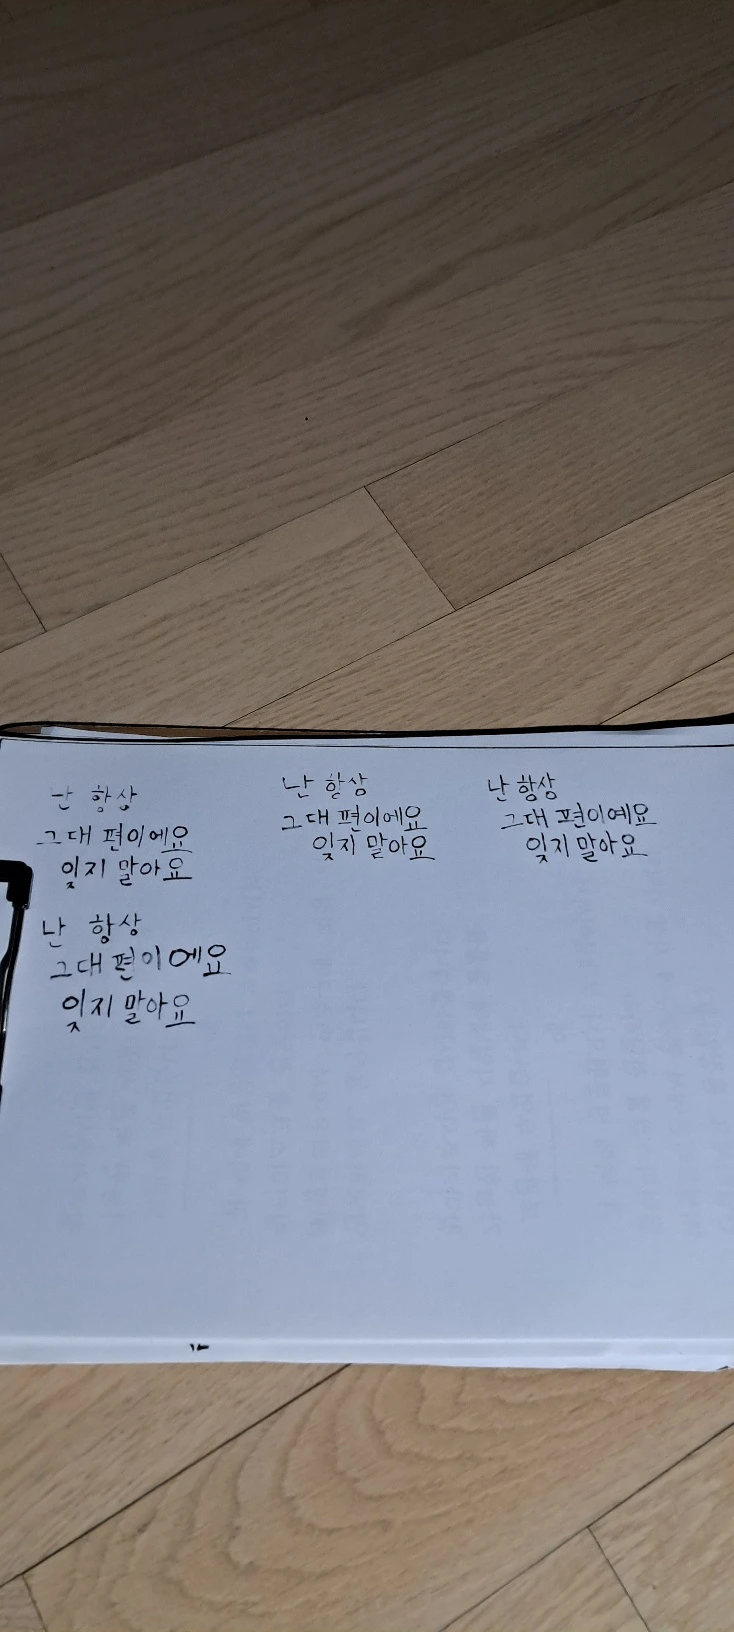 난 항상
그대 편이에요
잊지 말아요
난 항상
그대 편이에요
잊지 말아요
난 항상
그대 편이예요
잊지 말아요
난 항상
그대 편이에요
잊지 말아요